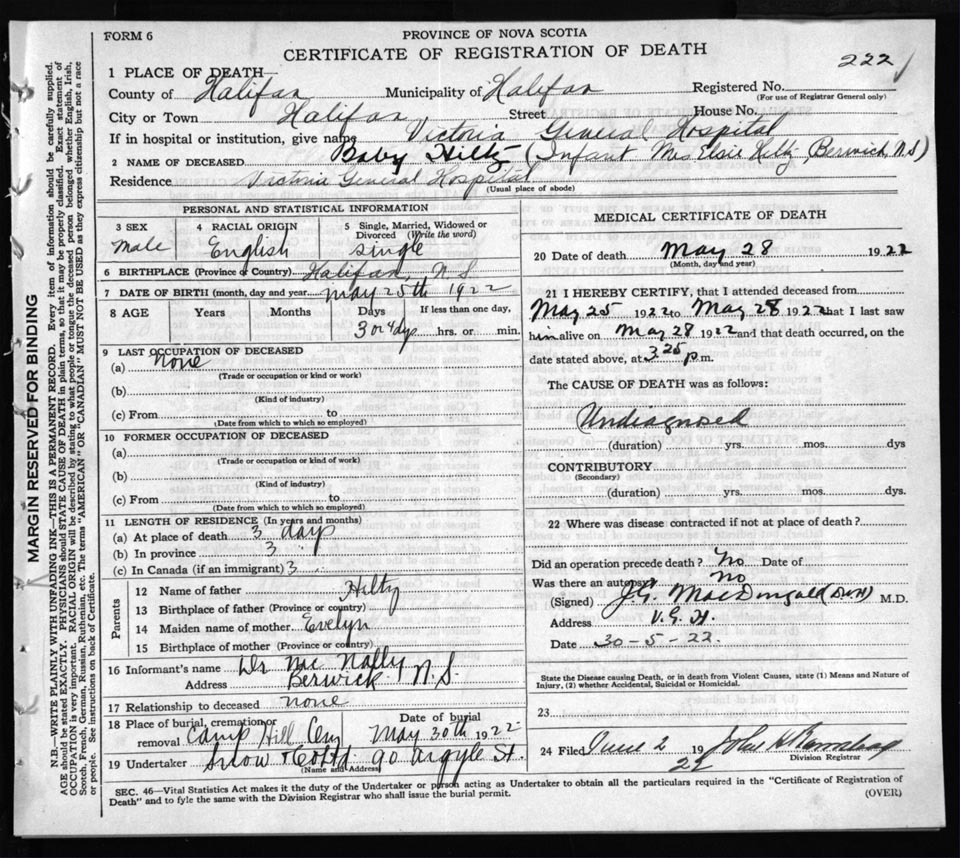 FORM 6
PROVINCE OF NOVA SCOTIA
CERTIFICATE OF REGISTRATION OF DEATH
222
1 PLACE OF DEATH
County of Halifax Municipality of Halifax Registered No.
(For use of Registrar General only)
City or Town Halifax Street House No.
If in hospital or institution, give name Victoria General Hospital
2 NAME OF DECEASED Baby Hiltz (Infant Mrs Elsie Hiltz, Berwick, N.S)
Residence Victoria General Hospital
(Usual place of abode)
PERSONAL AND STATISTICAL INFORMATION
3 SEX 4 RACIAL ORIGIN 5 Single, Married, Widowed or Divorced (Write the word)
Male English Single
6 BIRTHPLACE (Province or Country) Halifax, N S
7 DATE OF BIRTH (month, day and year) May 25th 1922
8 AGE Years Months Days If less than one day,
3 or 4 dys hrs. or min.
9 LAST OCCUPATION OF DECEASED
(a) None
(Trade or occupation or kind or work)
(b)
(Kind of industry)
(c) From to
(Date from which to which so employed)
10 FORMER OCCUPATION OF DECEASED
(a)
(Trade or occupation or kind of work)
(b)
(Kind of industry)
(c) From to
(Date from which to which so employed)
11 LENGTH OF RESIDENCE (In years and months)
(a) At place of death 3 days
(b) In province 3
(c) In Canada (if an immigrant) 3
Parents
12 Name of father Hilty
13 Birthplace of father (Province or country)
14 Maiden name of mother Evelyn
15 Birthplace of mother (Province or country)
16 Informant's name Dr Mc Nally
Address Berwick N.S.
17 Relationship to deceased none
18 Place of burial, cremation or removal Camp Hill Cemy Date of burial May 30th 1922
19 Undertaker Snow & Co Ltd 90 Argyle St.
(Name and Address)
MEDICAL CERTIFICATE OF DEATH
20 Date of death May 28 1922
(Month, day and year)
21 I HEREBY CERTIFY, that I attended deceased from
May 25 1922 to May 28 1922 that I last saw
him alive on May 28 1922 and that death occurred, on
date stated above, at 3.25 p.m.
The CAUSE OF DEATH was as follows:
Undiagnosed
(duration) yrs. mos. dys
CONTRIBUTORY
(Secondary)
(duration) yrs. mos. dys.
22 Where was disease contracted if not at place of death?
Did an operation precede death? No Date of
Was there an autopsy No
(Signed) J.G. MacDougald M.D.
Address V.G.H.
Date 30-5-22.
State the Disease causing Death, or in death from Violent Causes, state (1) Means and Nature of
Injury, (2) whether Accidental, Suicidal or Homicidal.
23
24 Filed June 2 19 22 John H
Division Registrar
SEC. 46—Vital Statistics Act makes it the duty of the Undertaker or person acting as Undertaker to obtain all the particulars required in the "Certificate of Registration of
Death" and to fyle the same with the Division Registrar who shall issue the burial permit.
(OVER)
MARGIN RESERVED FOR BINDING
N.B.—WRITE PLAINLY WITH UNFADING INK—THIS IS A PERMANENT RECORD. Every item of information should be carefully supplied.
AGE should be stated EXACTLY. PHYSICIANS should STATE CAUSE OF DEATH in plain terms, so that it may be properly classified. Exact statement of
OCCUPATION is very important. RACIAL ORIGIN will be described by stating to what people or tongue the deceased person belonged whether English, Irish,
Scotch, French, German, Russian, Ruthenian, etc. The terms "AMERICAN" or "CANADIAN" MUST NOT BE USED as they express citizenship but not a race
or people. See instructions on back of Certificate.